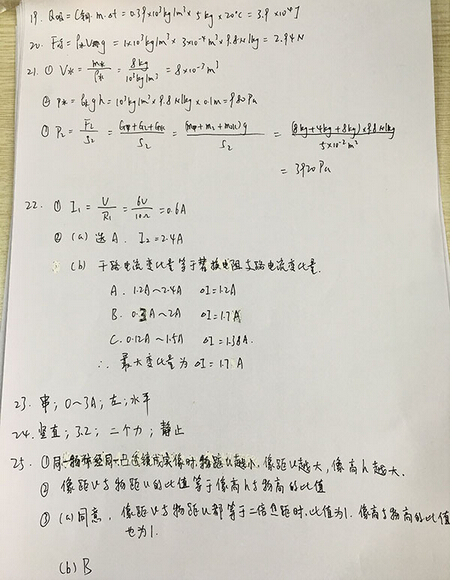 19. Q吸 = C铜 m·Δt = 0.39×10³kg/m³ × 5kg × 20℃ = 3.9×10⁴J
20. F浮 = ρ水V排g = 1×10³kg/m³ × 3×10⁻⁴m³ × 9.8N/kg = 2.94N
21. ① V水 = m水/ρ水 = 8kg/10³kg/m³ = 8×10⁻³m³
② P水 = ρ水gh = 10³kg/m³ × 9.8N/kg × 0.1m = 980Pa
③ P₂ = F₂/S₂ = /S₂ = /S₂ = (8kg+4kg+8kg)×9.8N/kg/5×10⁻²m²
= 3920Pa
22. ① I₁ = U/R₁ = 6V/10Ω = 0.6A
② (a) 选A. I₂=2.4A
(b) 干路电流变化量等于替换电阻支路电流变化量.
A. 1.2A~2.4A ΔI=1.2A
B. 0.3A~2A ΔI=1.7A
C. 0.12A~1.5A ΔI=1.38A.
∴ 最大变化量为ΔI=1.7A
23. 串; 0~3A; 左; 水平
24. 竖直; 3.2; 二个力; 静止
25. ①同一物体经同一凸透镜成实像时,物距u越小,像距v越大,像高h越大.
② 像距v与物距u的比值等于像高h与物高的比值
③ (a)同意. 像距v与物距u都等于二倍焦距时,比值为1. 像高与物高的比值
也为1.
(b) B